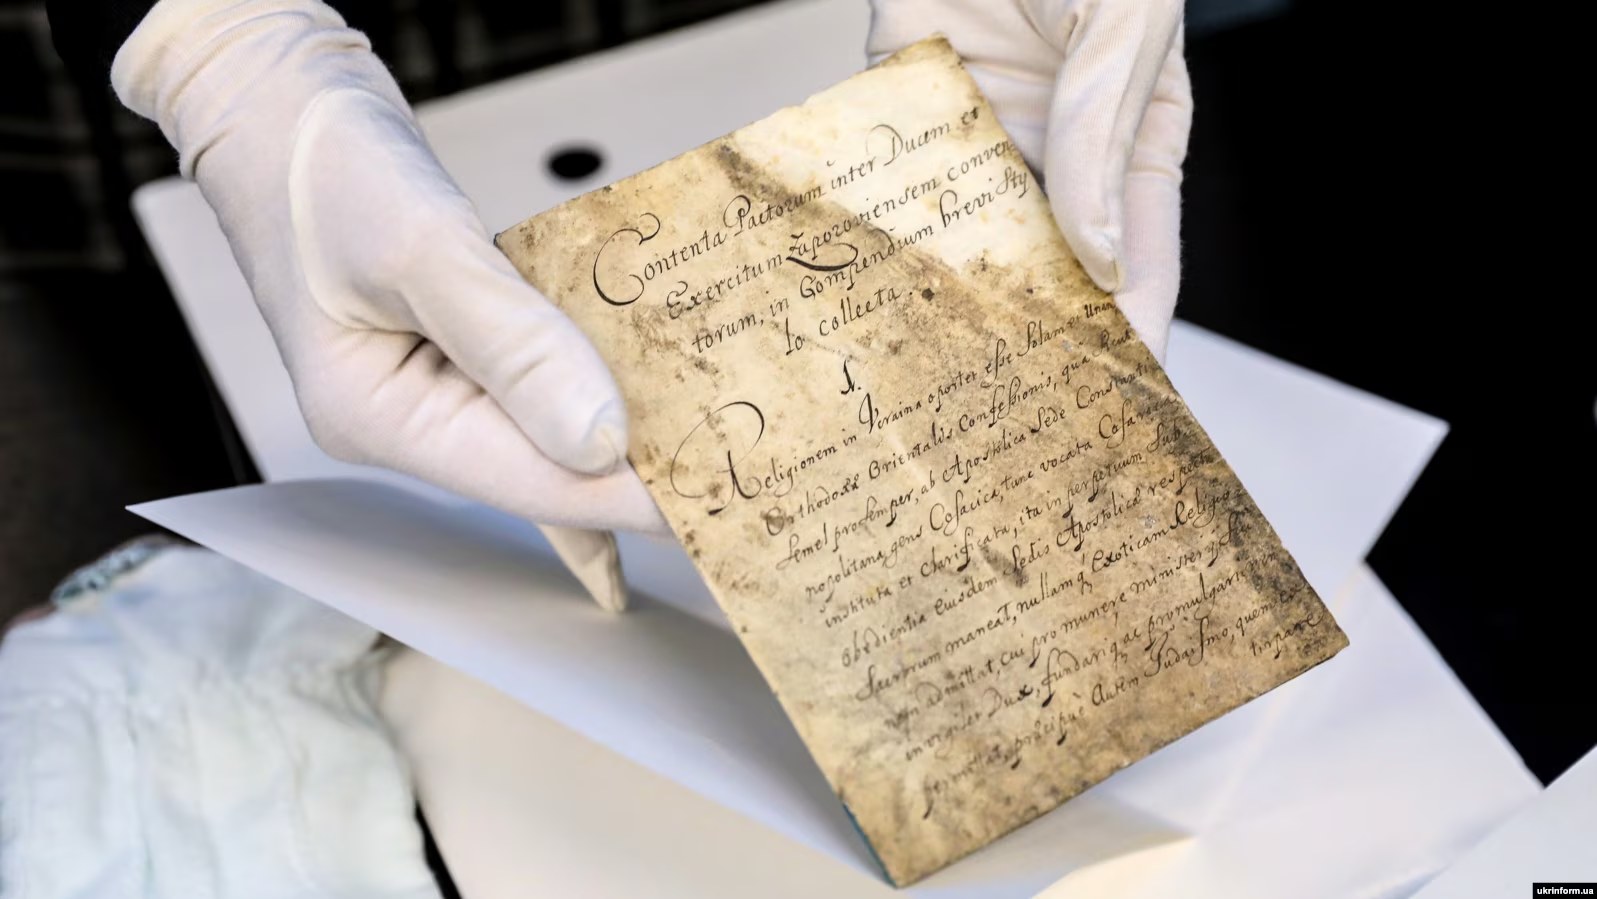 Contenta Pactorum inter Ducem et
Exercitum Zaporoviensem conven
torum, in Compendium brevi Sty
lo collecta.
1.
Religionem in Ucraina oportet esse Solam et Unam
Orthodoxæ Orientalis Confessionis, quâ
semel pro semper, ab Apostolica Sede Constanti
nopolitana, gens Cosacica, tunc vocata Cosar
instituta et clarificata, ita in perpetuum Sub
obedientia eiusdem Sedis Apostolicæ
maneat, nullamq Exoticam Religio
non admittat, cui pro munere ministerij
invigilet Dux, fundariq ac promulgari
præcipuè Autem Judaismo, quem
ukrinform.ua